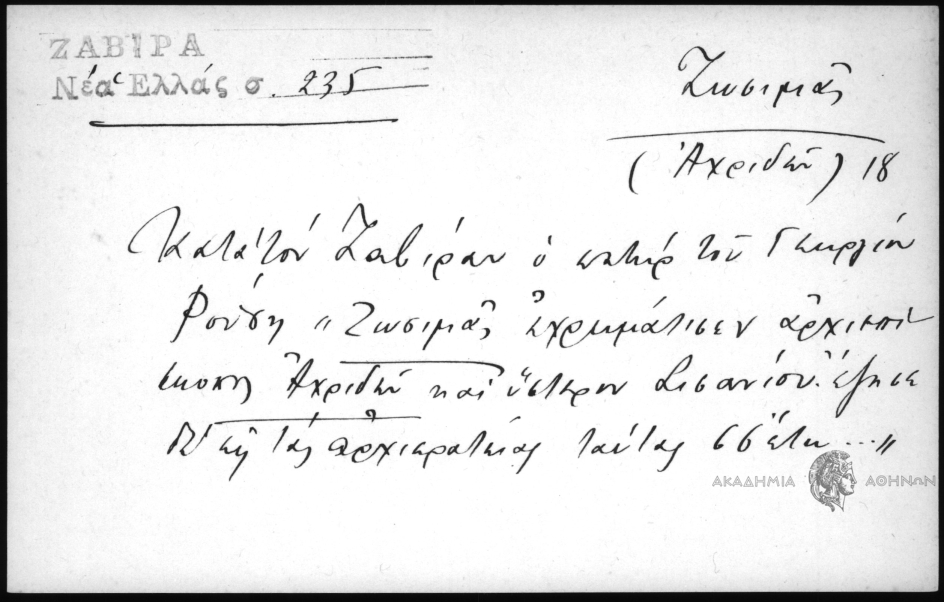 ΖΑΒΙΡΑ
Νέα Ἑλλάς σ. 235
Ζωσιμᾶς
(Ἀχριδῶν) 18
Κατὰ τὸν Ζαβίραν ὁ πατὴρ τοῦ Γεωργίου
Ρούση „Ζωσιμᾶς ἐχρημάτισεν ἀρχιεπί
σκοπος Ἀχριδῶν καὶ ὕστερον Σισανίου. ἔζησε
δὲ εἰς τὰς ἀρχιερατείας ταύτας 66 ἔτη ... „
ΑΚΑΔΗΜΙΑ ΑΘΗΝΩΝ